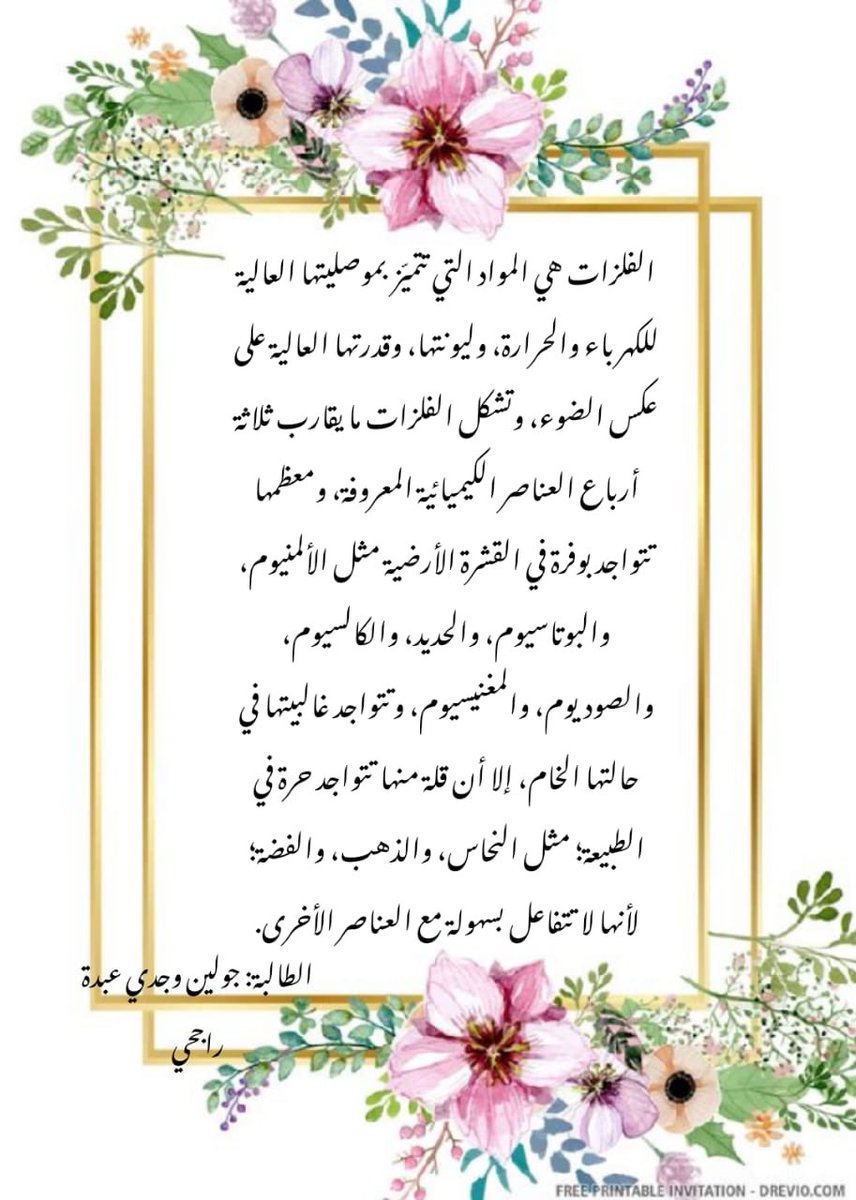 الفلزات هي المواد التي تتميّز بموصليتها العالية
للكهرباء والحرارة، وليونتها، وقدرتها العالية على
عكس الضوء، وتشكل الفلزات ما يقارب ثلاثة
أرباع العناصر الكيميائية المعروفة، ومعظمها
تتواجد بوفرة في القشرة الأرضية مثل الألمنيوم،
والبوتاسيوم، والحديد، والكالسيوم،
والصوديوم، والمغنيسيوم، وتتواجد غالبيتها في
حالتها الخام، إلا أن قلة منها تتواجد حرة في
الطبيعة؛ مثل النحاس، والذهب، والفضة؛
لأنها لا تتفاعل بسهولة مع العناصر الأخرى.
الطالبة: جولين وجدي عبدة
راجحي
FREE PRINTABLE INVITATION - DREVIO.COM